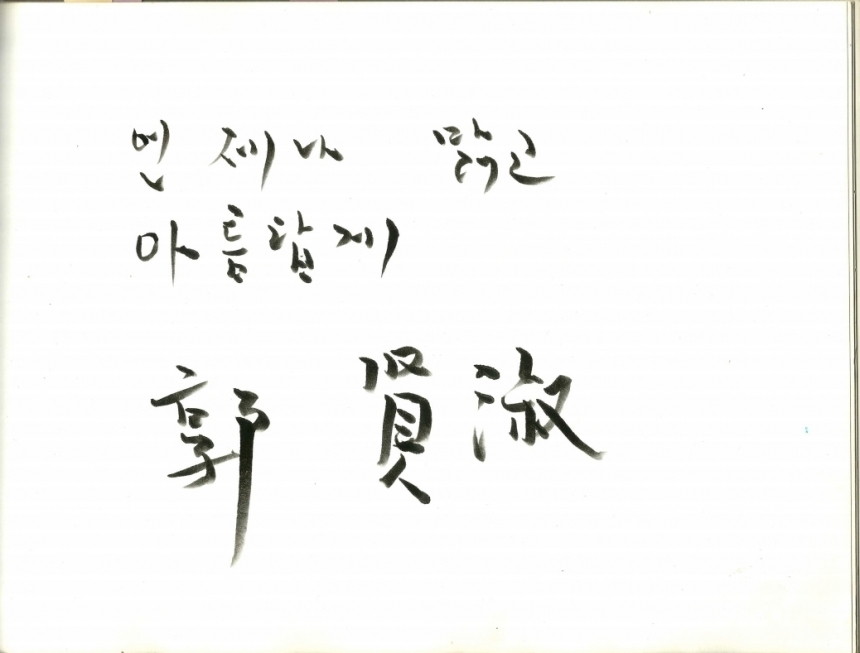 언제나 맑고
아름답게
郭 賢淑